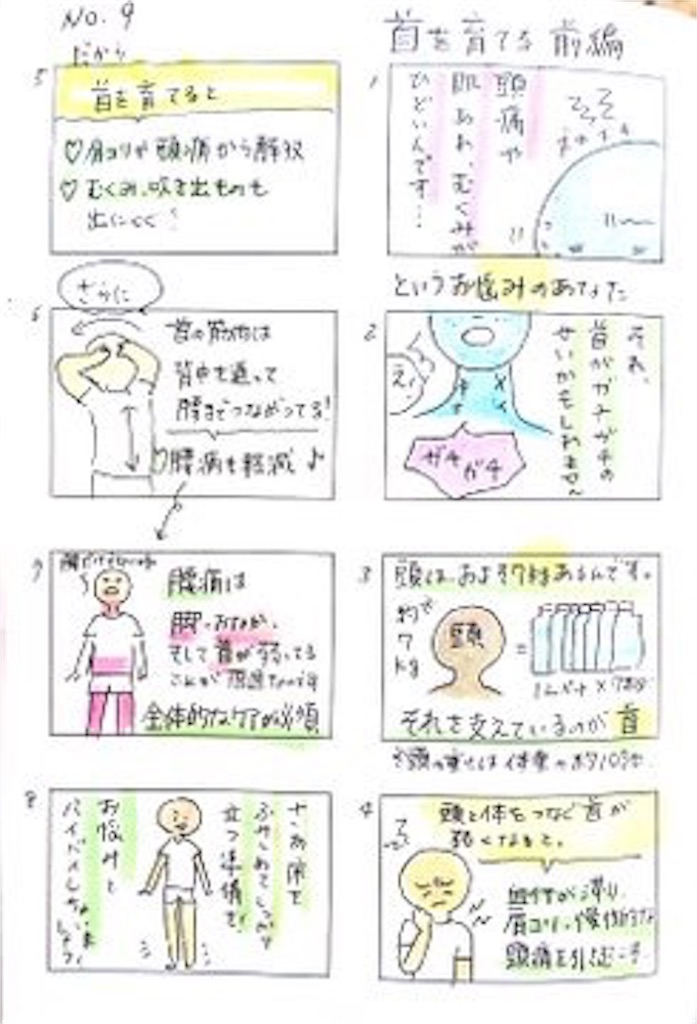 NO. 9
首を育てる 前編
1
頭痛や
肌あれ、むくみが
ひどいんです…
というお悩みのあなた
2
それ、
首がガチガチの
せいかもしれませ〜
え、
ガチ
ガチ
3
頭は、およそ7kgあるんです。
約
7
kg
頭
=
それを支えているのが首
※頭の重さは体重の約10%
4
頭と体をつなぐ首が
弱くなると、
血行が滞り、
肩コリ
頭痛を引きおこす
5
だから
首を育てると
♡肩コリや頭痛から解放
♡むくみ、吹き出ものも
出にくく!
6
さらに
首の筋肉は
背中を通って
腰までつながってる!
♡腰痛も軽減♪
7
腰痛は
脚、おなか、
そして首が弱ってる
ことが原因なのです
全体的なケアが必須
8
さあ床を
ふみしめてしっかり
立つ準備を!
お悩みと
バイバイしちゃいま
しょう!